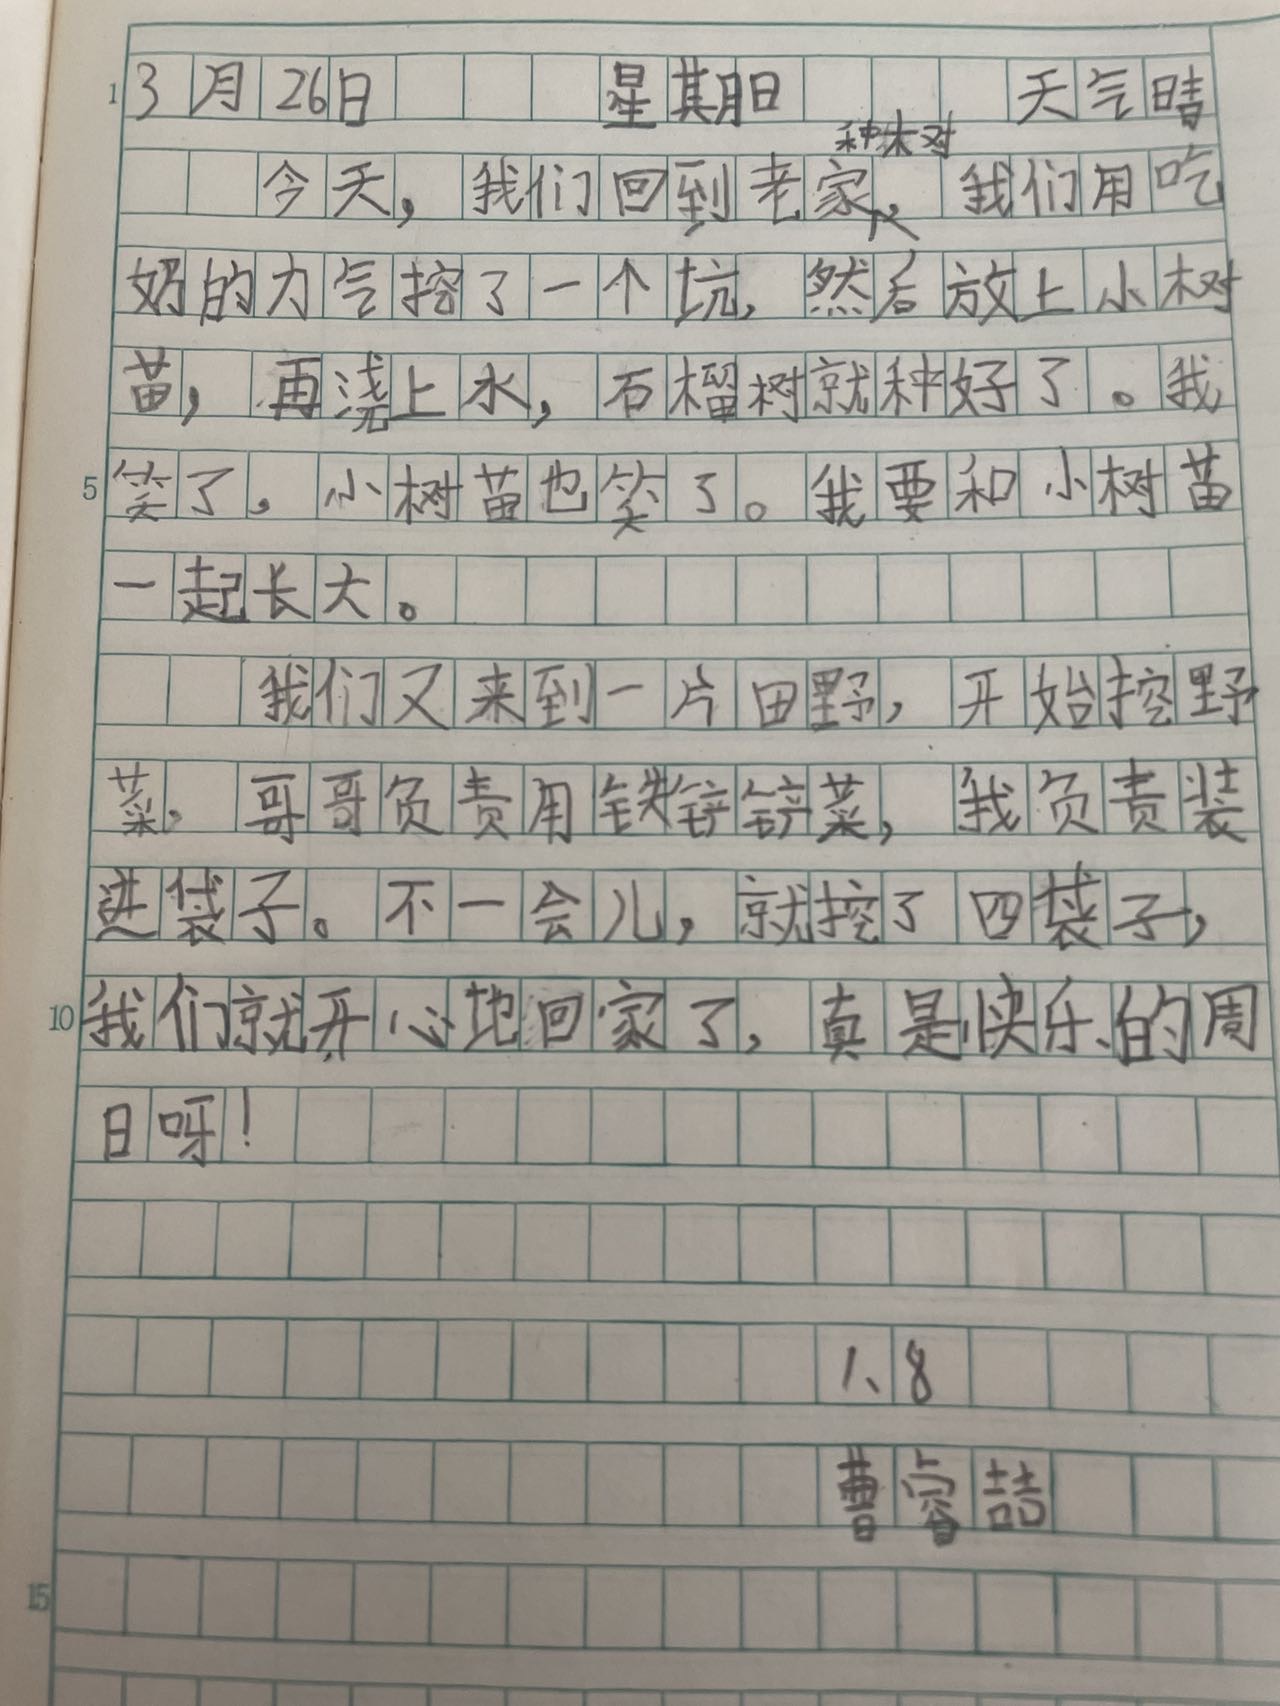 1 3月26日 星期日 天气晴
种树
今天，我们回到老家，我们用吃
奶的力气挖了一个坑，然后放上小树
苗，再浇上水，石榴树就种好了。我
5 笑了。小树苗也笑了。我要和小树苗
一起长大。
我们又来到一片田野，开始挖野
菜，哥哥负责用铁锌锌菜，我负责装
进袋子。不一会儿，就挖了四袋子，
10 我们就开心地回家了，真是快乐的周
日呀！
1、8
曹睿喆
15